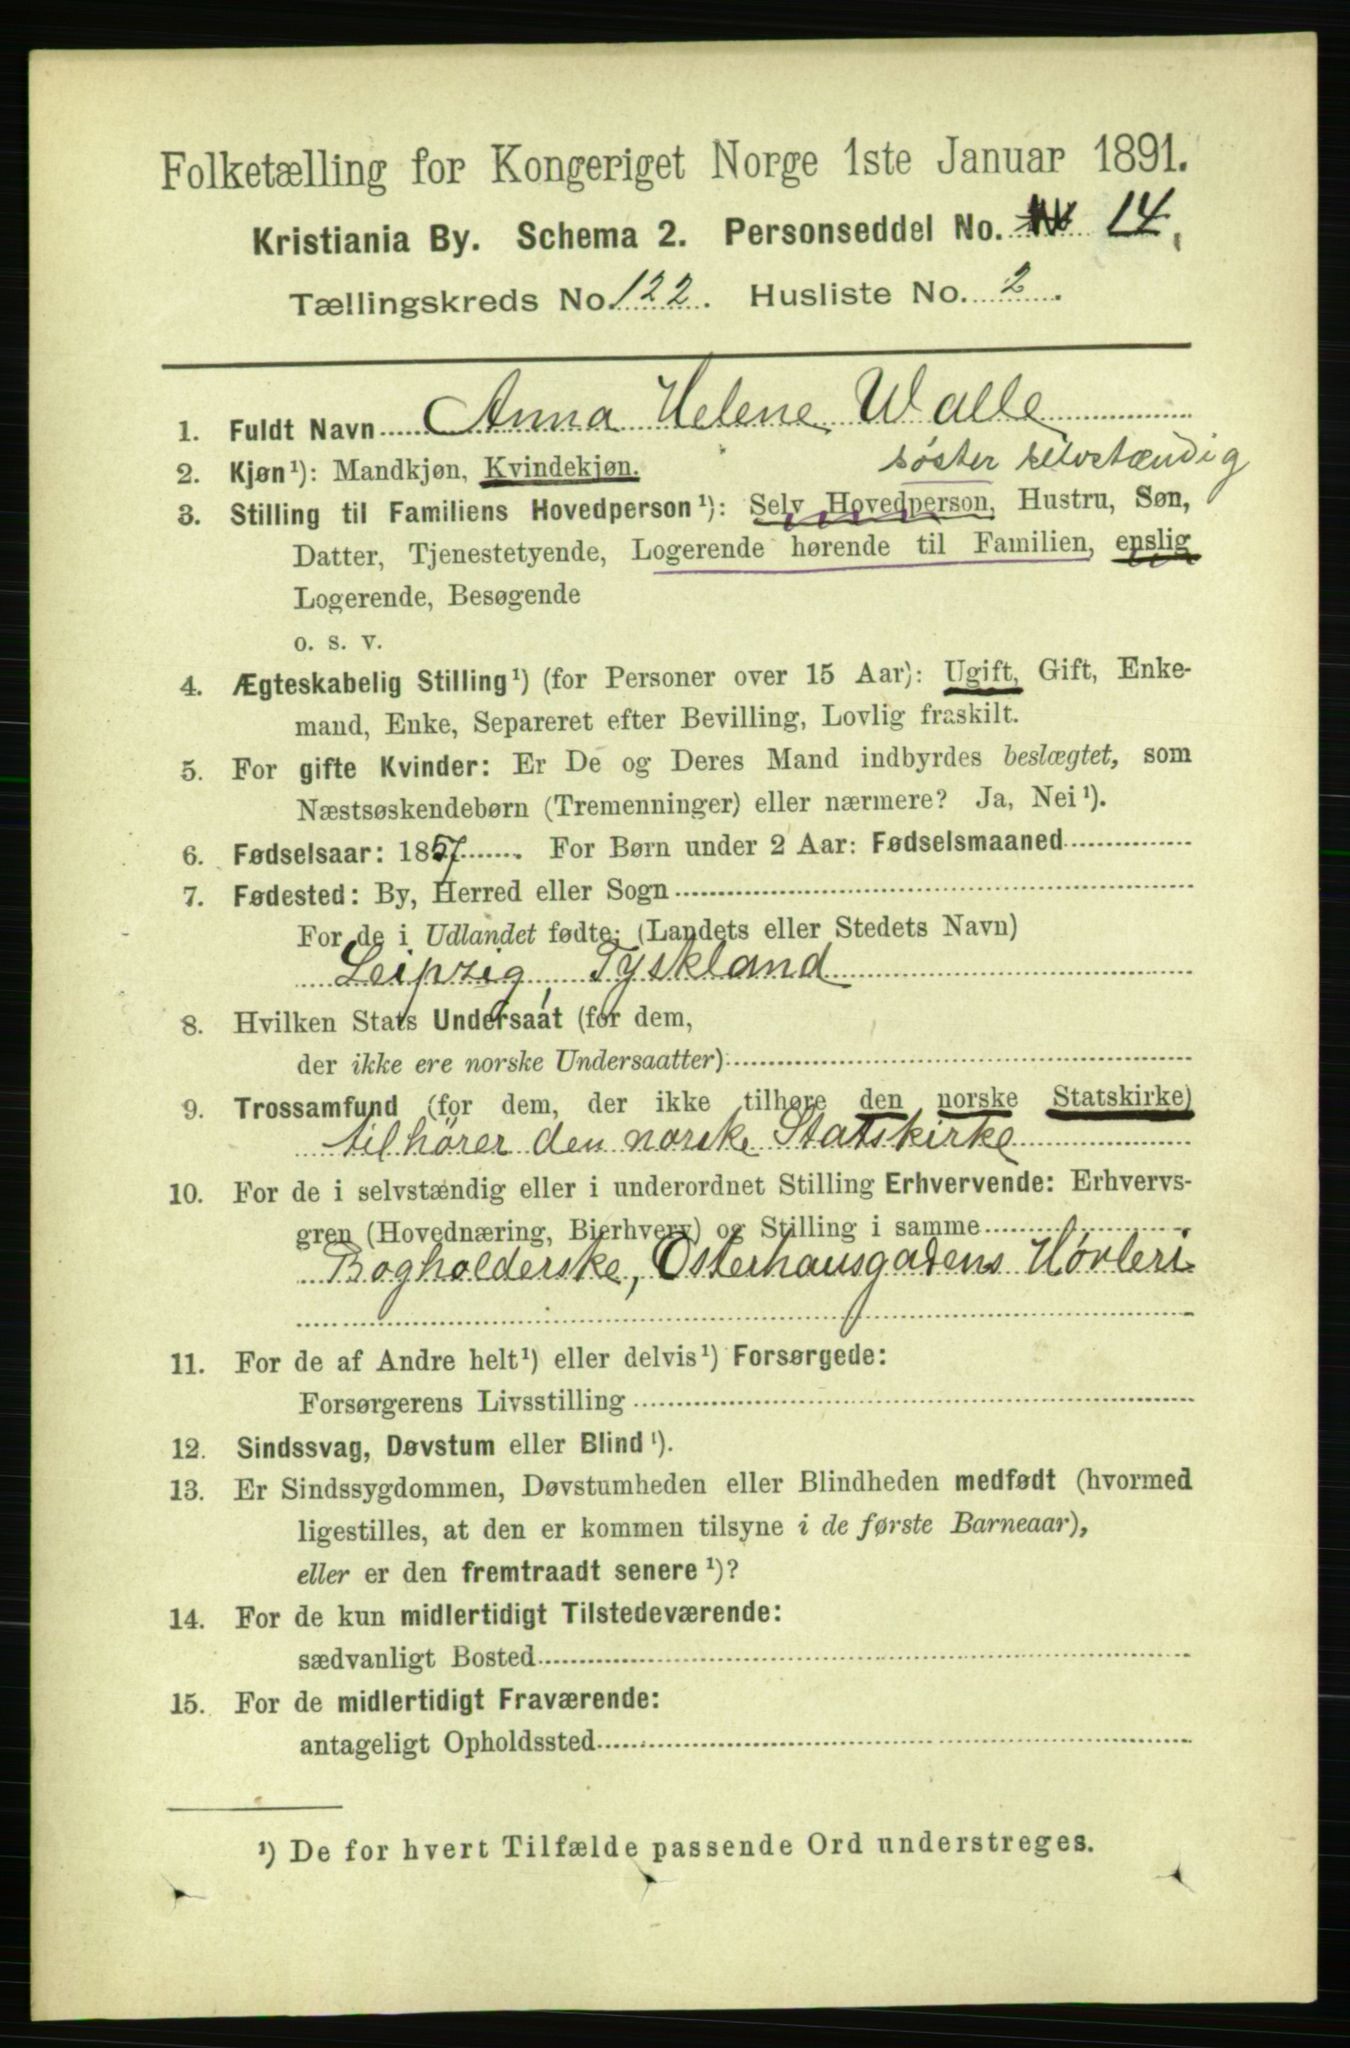 Folketælling for Kongeriget Norge 1ste Januar 1891.
Kristiania By. Schema 2. Personseddel No. 14.
Tællingskreds No. 122. Husliste No. 2.
1. Fuldt Navn Anna Helene Walle
søster selvstændig
2. Kjøn¹): Mandkjøn, Kvindekjøn.
3. Stilling til Familiens Hovedperson¹): Selv Hovedperson, Hustru, Søn,
Datter, Tjenestetyende, Logerende hørende til Familien, enslig
Logerende, Besøgende
o. s. v.
4. Ægteskabelig Stilling¹) (for Personer over 15 Aar): Ugift, Gift, Enke-
mand, Enke, Separeret efter Bevilling, Lovlig fraskilt.
5. For gifte Kvinder: Er De og Deres Mand indbyrdes beslægtet, som
Næstsøskendebørn (Tremenninger) eller nærmere? Ja, Nei¹).
6. Fødselsaar: 1857. For Børn under 2 Aar: Fødselsmaaned
7. Fødested: By, Herred eller Sogn
For de i Udlandet fødte: (Landets eller Stedets Navn)
Leipzig, Tyskland
8. Hvilken Stats Undersaat (for dem,
der ikke ere norske Undersaatter):
9. Trossamfund (for dem, der ikke tilhøre den norske Statskirke)
tilhører den norske Statskirke
10. For de i selvstændig eller i underordnet Stilling Erhvervende: Erhvervs-
gren (Hovednæring, Bierhverv) og Stilling i samme
Bogholderske, Osterhausgadens Høvleri
11. For de af Andre helt¹) eller delvis¹) Forsørgede:
Forsørgerens Livsstilling
12. Sindssvag, Døvstum eller Blind¹).
13. Er Sindssygdommen, Døvstumheden eller Blindheden medfødt (hvormed
ligestilles, at den er kommen tilsyne i de første Barneaar),
eller er den fremtraadt senere¹)?
14. For de kun midlertidigt Tilstedeværende:
sædvanligt Bosted
15. For de midlertidigt Fraværende:
antageligt Opholdssted
¹) De for hvert Tilfælde passende Ord understreges.